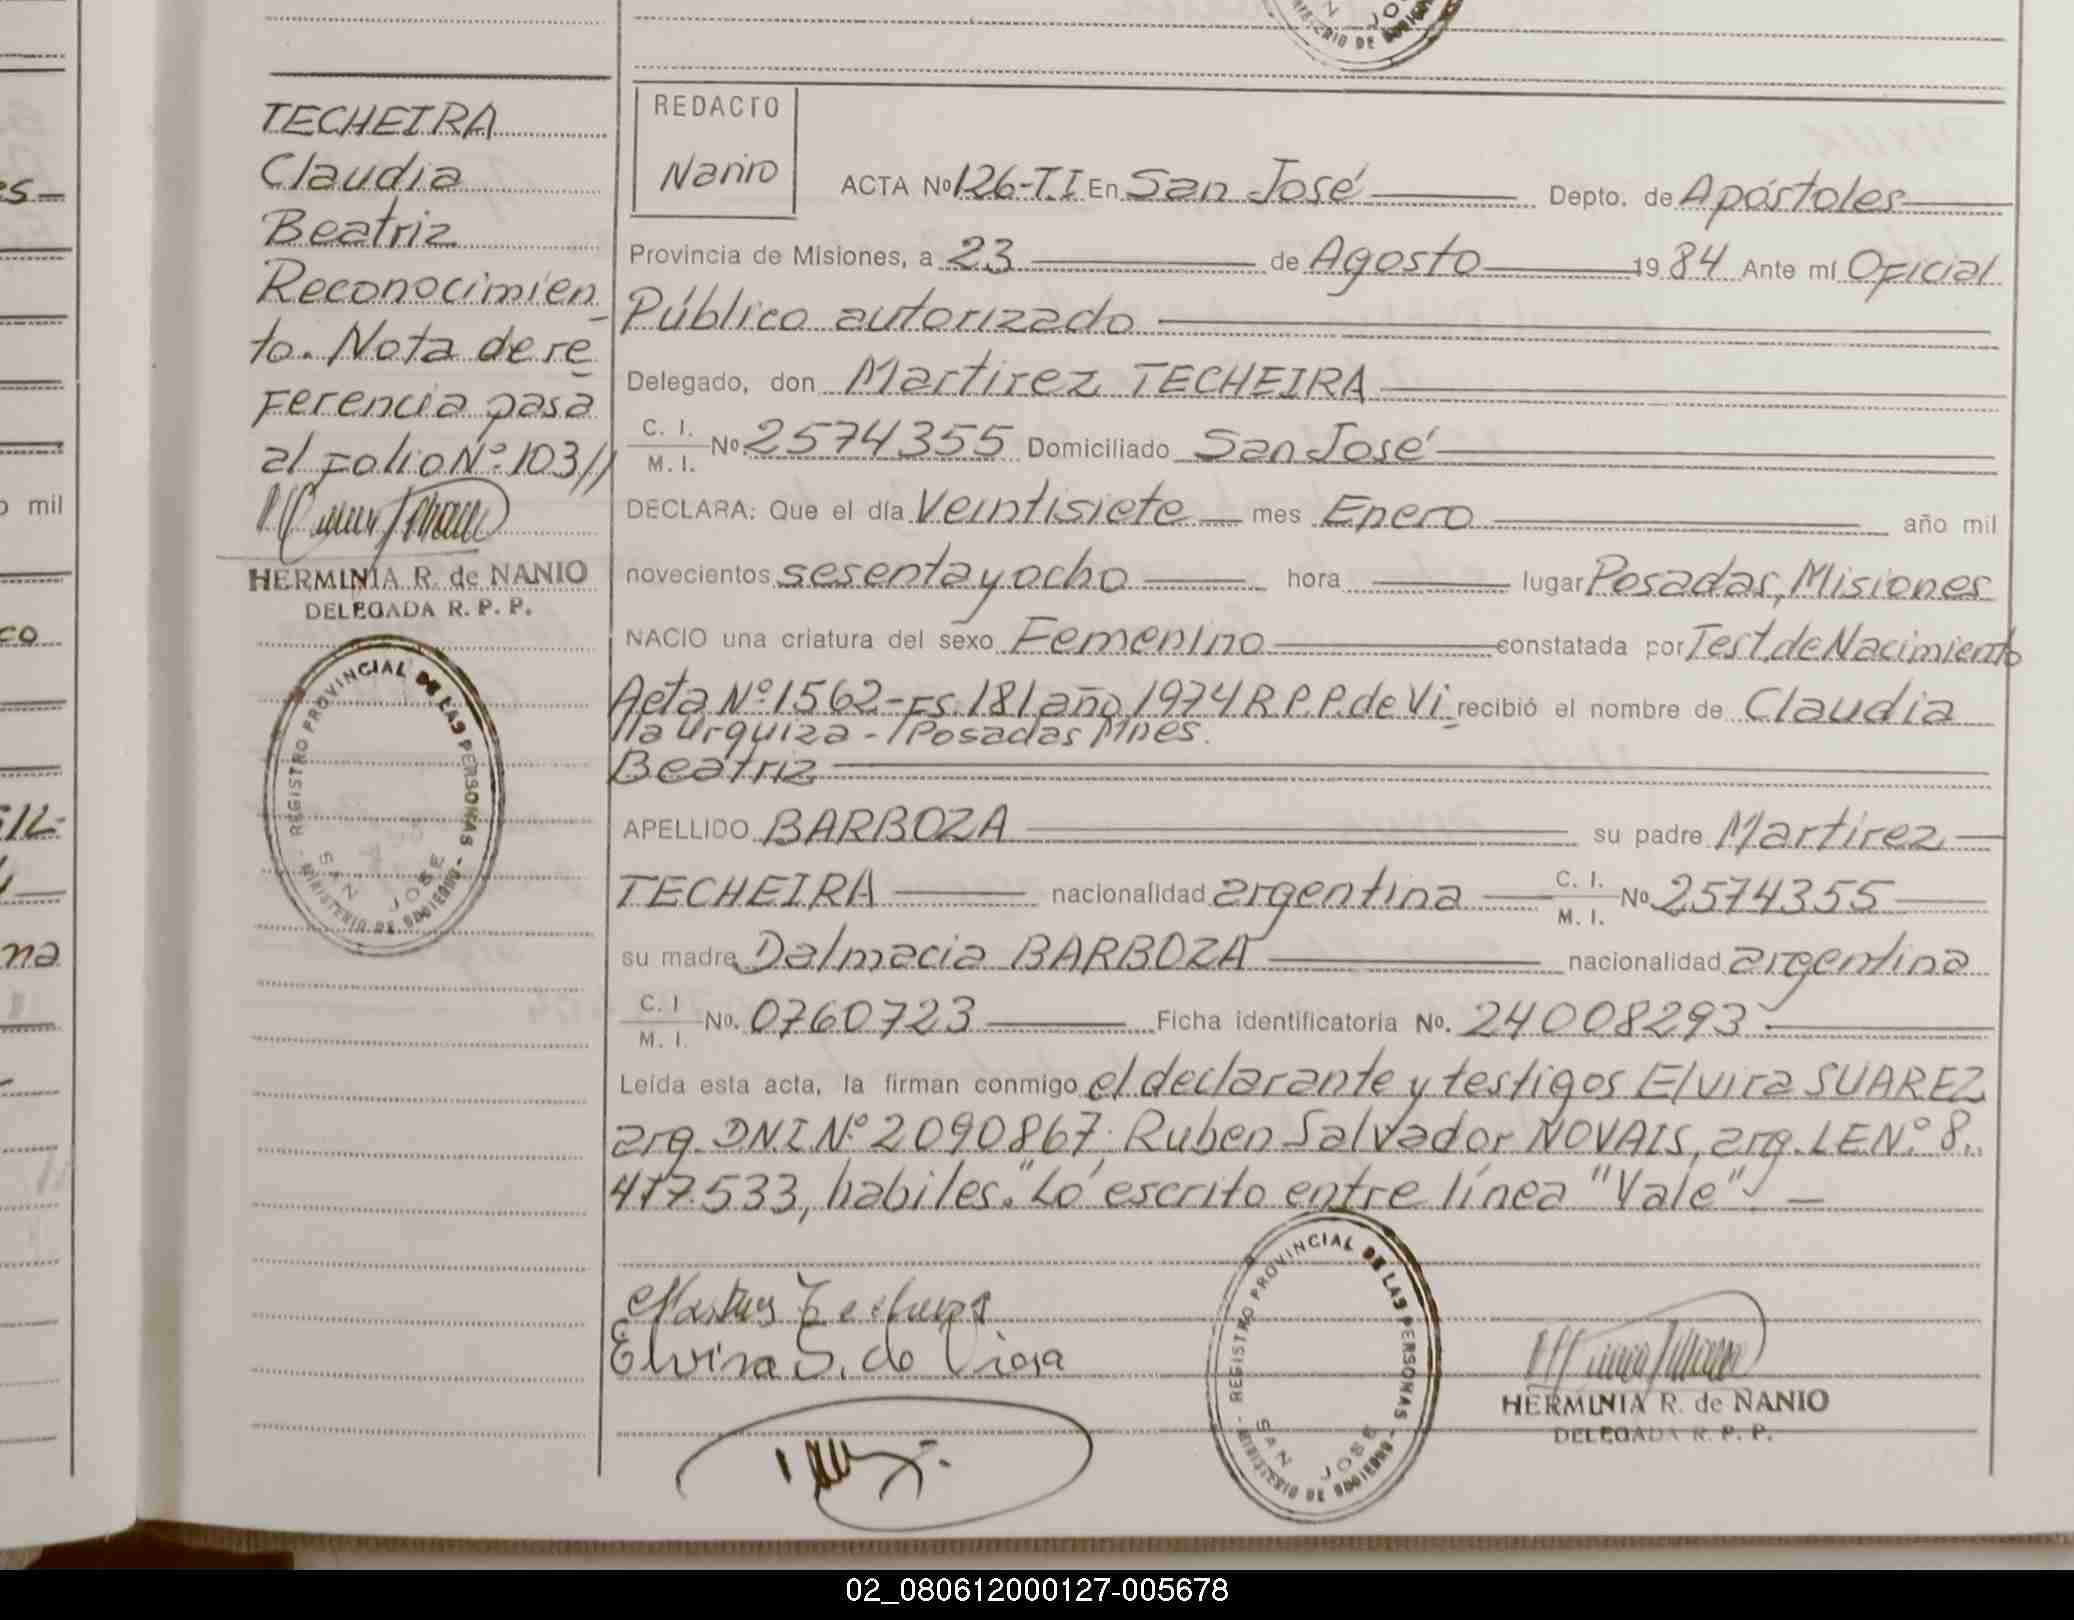 TECHEIRA
Claudia
Beatriz
Reconocimien
to. Nota de re
ferencia pasa
al folio Nº 103//
HERMINIA R. de NANIO
DELEGADA R. P. P.
- REGISTRO PROVINCIAL DE LAS PERSONAS -
MINISTERIO DE GOBIERNO
SAN JOSE
REDACTO
Nanio
ACTA Nº 126-T.I En San José Depto. de Apóstoles
Provincia de Misiones, a 23 de Agosto 19 84 Ante mí Oficial
Público autorizado
Delegado, don Martirez TECHEIRA
C. I. / M. I. No. 2574355 Domiciliado San José
DECLARA: Que el día Veintisiete mes Enero año mil
novecientos sesenta y ocho hora lugar Posadas, Misiones
NACIO una criatura del sexo Femenino constatada por Test. de Nacimiento
Acta Nº 1562-Fs. 181 año 1974 R.P.P. de Vi_ recibió el nombre de Claudia
lla Urquiza - Posadas Mnes.
Beatriz
APELLIDO BARBOZA su padre Martirez
TECHEIRA nacionalidad argentina C. I. / M. I. No. 2574355
su madre Dalmacia BARBOZA nacionalidad argentina
C. I / M. I. No. 0760723 Ficha identificatoria No. 24008293
Leída esta acta, la firman conmigo el declarante y testigos Elvira SUAREZ
arg. D.N.I. Nº 2090867, Ruben Salvador NOVAIS, arg. L.E Nº 8.
417.533, habiles. "Lo escrito entre línea "Vale"
Elvira S. de
- REGISTRO PROVINCIAL DE LAS PERSONAS -
MINISTERIO DE GOBIERNO
SAN JOSE
HERMINIA R. de NANIO
DELEGADA R. P. P.
o mil
02_080612000127-005678